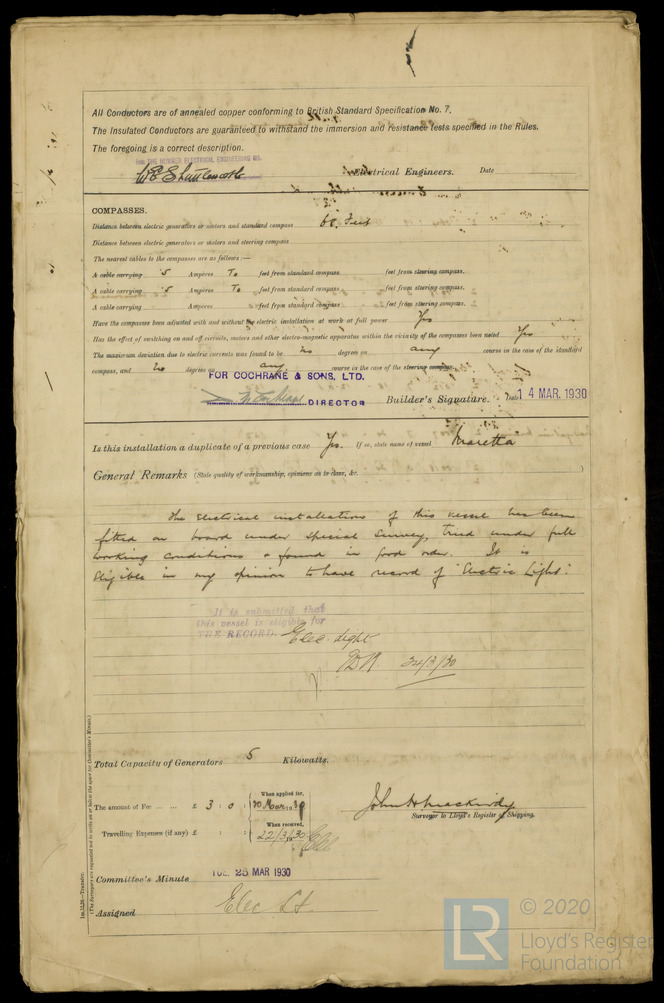 All Conductors are of annealed copper conforming to British Standard Specification No. 7.
The Insulated Conductors are guaranteed to withstand the immersion and resistance tests specified in the Rules.
The foregoing is a correct description.
FOR THE HUMBER ELECTRICAL ENGINEERING CO.
Electrical Engineers. Date
COMPASSES.
Distance between electric generators or motors and standard compass 60 Feet
Distance between electric generators or motors and steering compass
The nearest cables to the compasses are as follows:—
A cable carrying 5 Ampères To feet from standard compass feet from steering compass.
A cable carrying 5 Ampères To feet from standard compass feet from steering compass.
A cable carrying Ampères feet from standard compass feet from steering compass.
Have the compasses been adjusted with and without the electric installation at work at full power Yes
Has the effect of switching on and off circuits, motors and other electro-magnetic apparatus within the vicinity of the compasses been noted Yes
The maximum deviation due to electric currents was found to be no degrees on any course in the case of the standard
compass, and no degrees on any course in the case of the steering compass.
FOR COCHRANE & SONS, LTD.
DIRECTOR Builder's Signature. Date 14 MAR. 1930
Is this installation a duplicate of a previous case Yes. If so, state name of vessel Maretta
General Remarks (State quality of workmanship, opinions as to class, &c.
The Electrical installations of this vessel has been
fitted on board under special survey, tried under full
working conditions & found in good order. It is
eligible in my opinion to have record of "Electric Light".
It is submitted that
this vessel is eligible for
THE RECORD. Elec. Light
24/3/30
Total Capacity of Generators 5 Kilowatts.
The amount of Fee ... ... £ 3 : 0 : When applied for, 20 Mar 1930
When received,
Travelling Expenses (if any) £ : : 22/3/1930
Surveyor to Lloyd's Register of Shipping.
Committee's Minute TUE. 25 MAR 1930
Assigned Elec Lt.
1m.11.26.—Transfer.
(The Surveyors are requested not to write on or below the space for Committee's Minute.)
LR © 2020
Lloyd's Register
Foundation